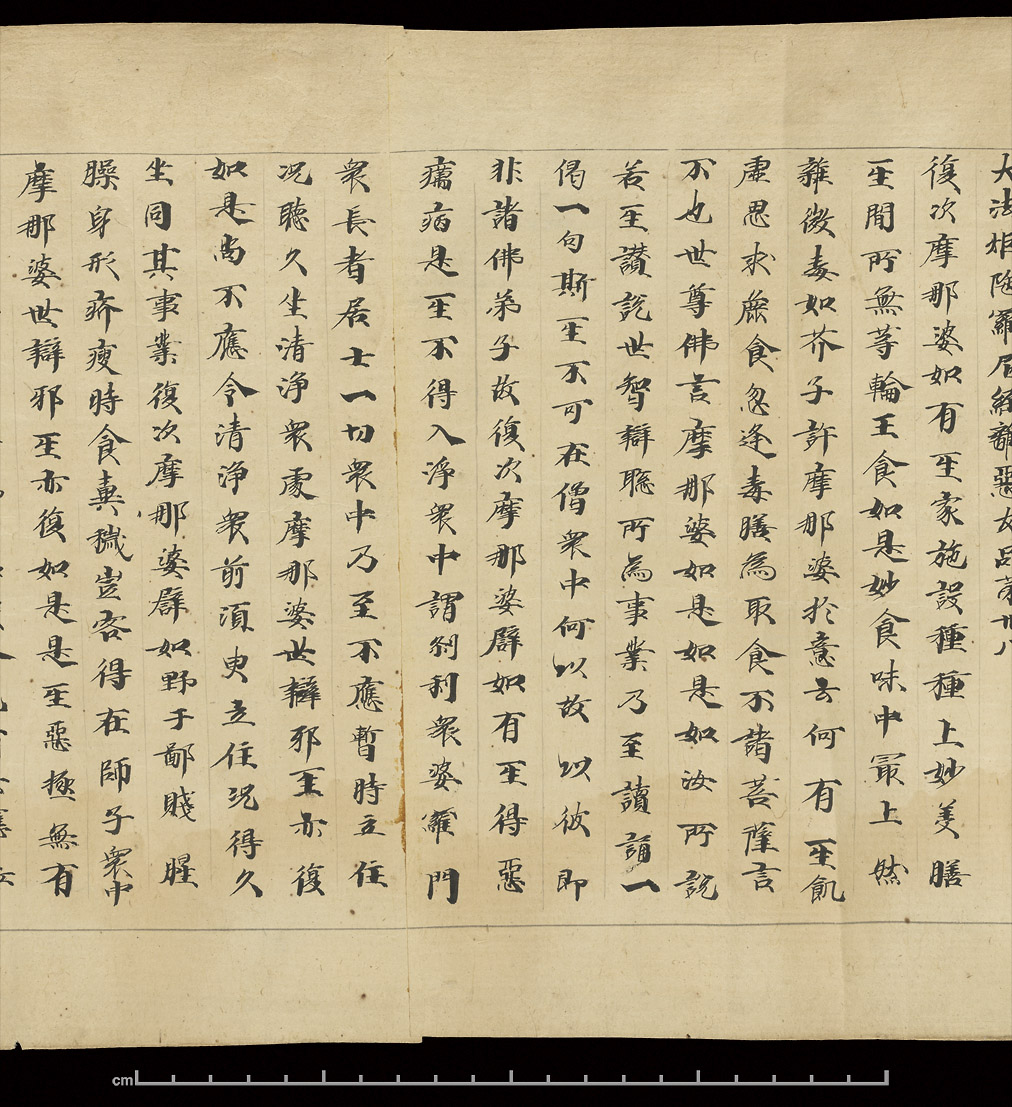 大法炬陀羅尼經離惡友品第卅八
復次摩那婆如有𤯔家施設種種上妙美膳
𤯔間所無等輪王食如是妙食味中冣上然
雜微毒如芥子許摩那婆於意云何有𤯔飢
虛思求麁食忽逢毒膳為取食不諸菩薩言
不也世尊佛言摩那婆如是如是如汝所說
若𤯔讃說世智辯聦所為事業乃至讀誦一
偈一句斯𤯔不可在僧衆中何以故以彼即
非諸佛弟子故復次摩那婆辟如有𤯔得惡
癘病是𤯔不得入淨衆中謂刹利衆婆羅門
衆長者居士一切衆中乃至不應暫時立住
況聽久坐清淨衆處摩那婆世辯邪𤯔亦復
如是尚不應令清淨衆前湏臾立住況得久
坐同其事業復次摩那婆辟如野干鄙賤腥
臊身形疥瘦時食糞穢豈容得在師子衆中
摩那婆世辯邪𤯔亦復如是是𤯔惡極無有
cm